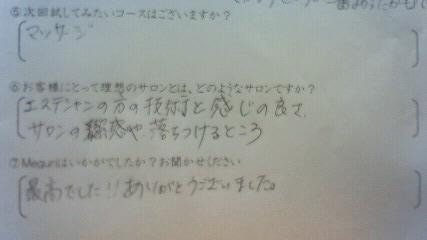 ⑤次回試してみたいコースはございますか?
マッサージ
⑥お客様にとって理想のサロンとは、どのようなサロンですか?
エステシャンの方の技術と感じの良さ、
サロンの潔感や落ちつけるところ
⑦Meguriはいかがでしたか?お聞かせください
最高でした!!ありがとうございました。